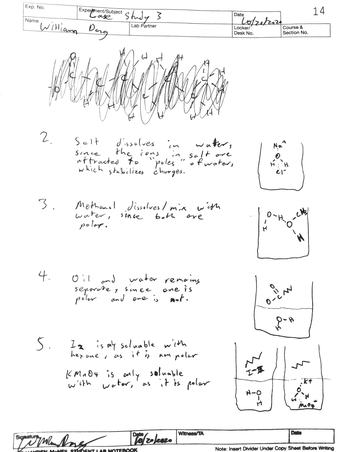 Exp. No.
Experiment/Subject Case Study 3
Date 10/20/2020
14
Name William Dong
Lab Partner
Locker/
Desk No.
Course &
Section No.
2. Salt dissolves in water,
since the ions in salt are
attracted to "poles" of water,
which stabilizes charges.
Na+
O
H H
Cl-
3. Methanol dissolves/mix with
water, since both are
polar.
O-H
H
O-CH3
H
4. Oil and water remains
separate, since one is
polar and one is not.
O
O-C
O-H
H
5. I2 is only soluable with
hexane, as it is non polar
KMnO4 is only soluable
with water, as it is polar
I-I
H-O
H
K+
O
H H
MnO4-
Signature
Date 10/20/2020
Witness/TA
Date
STUDENT LAB NOTEBOOK
Note: Insert Divider Under Copy Sheet Before Writing